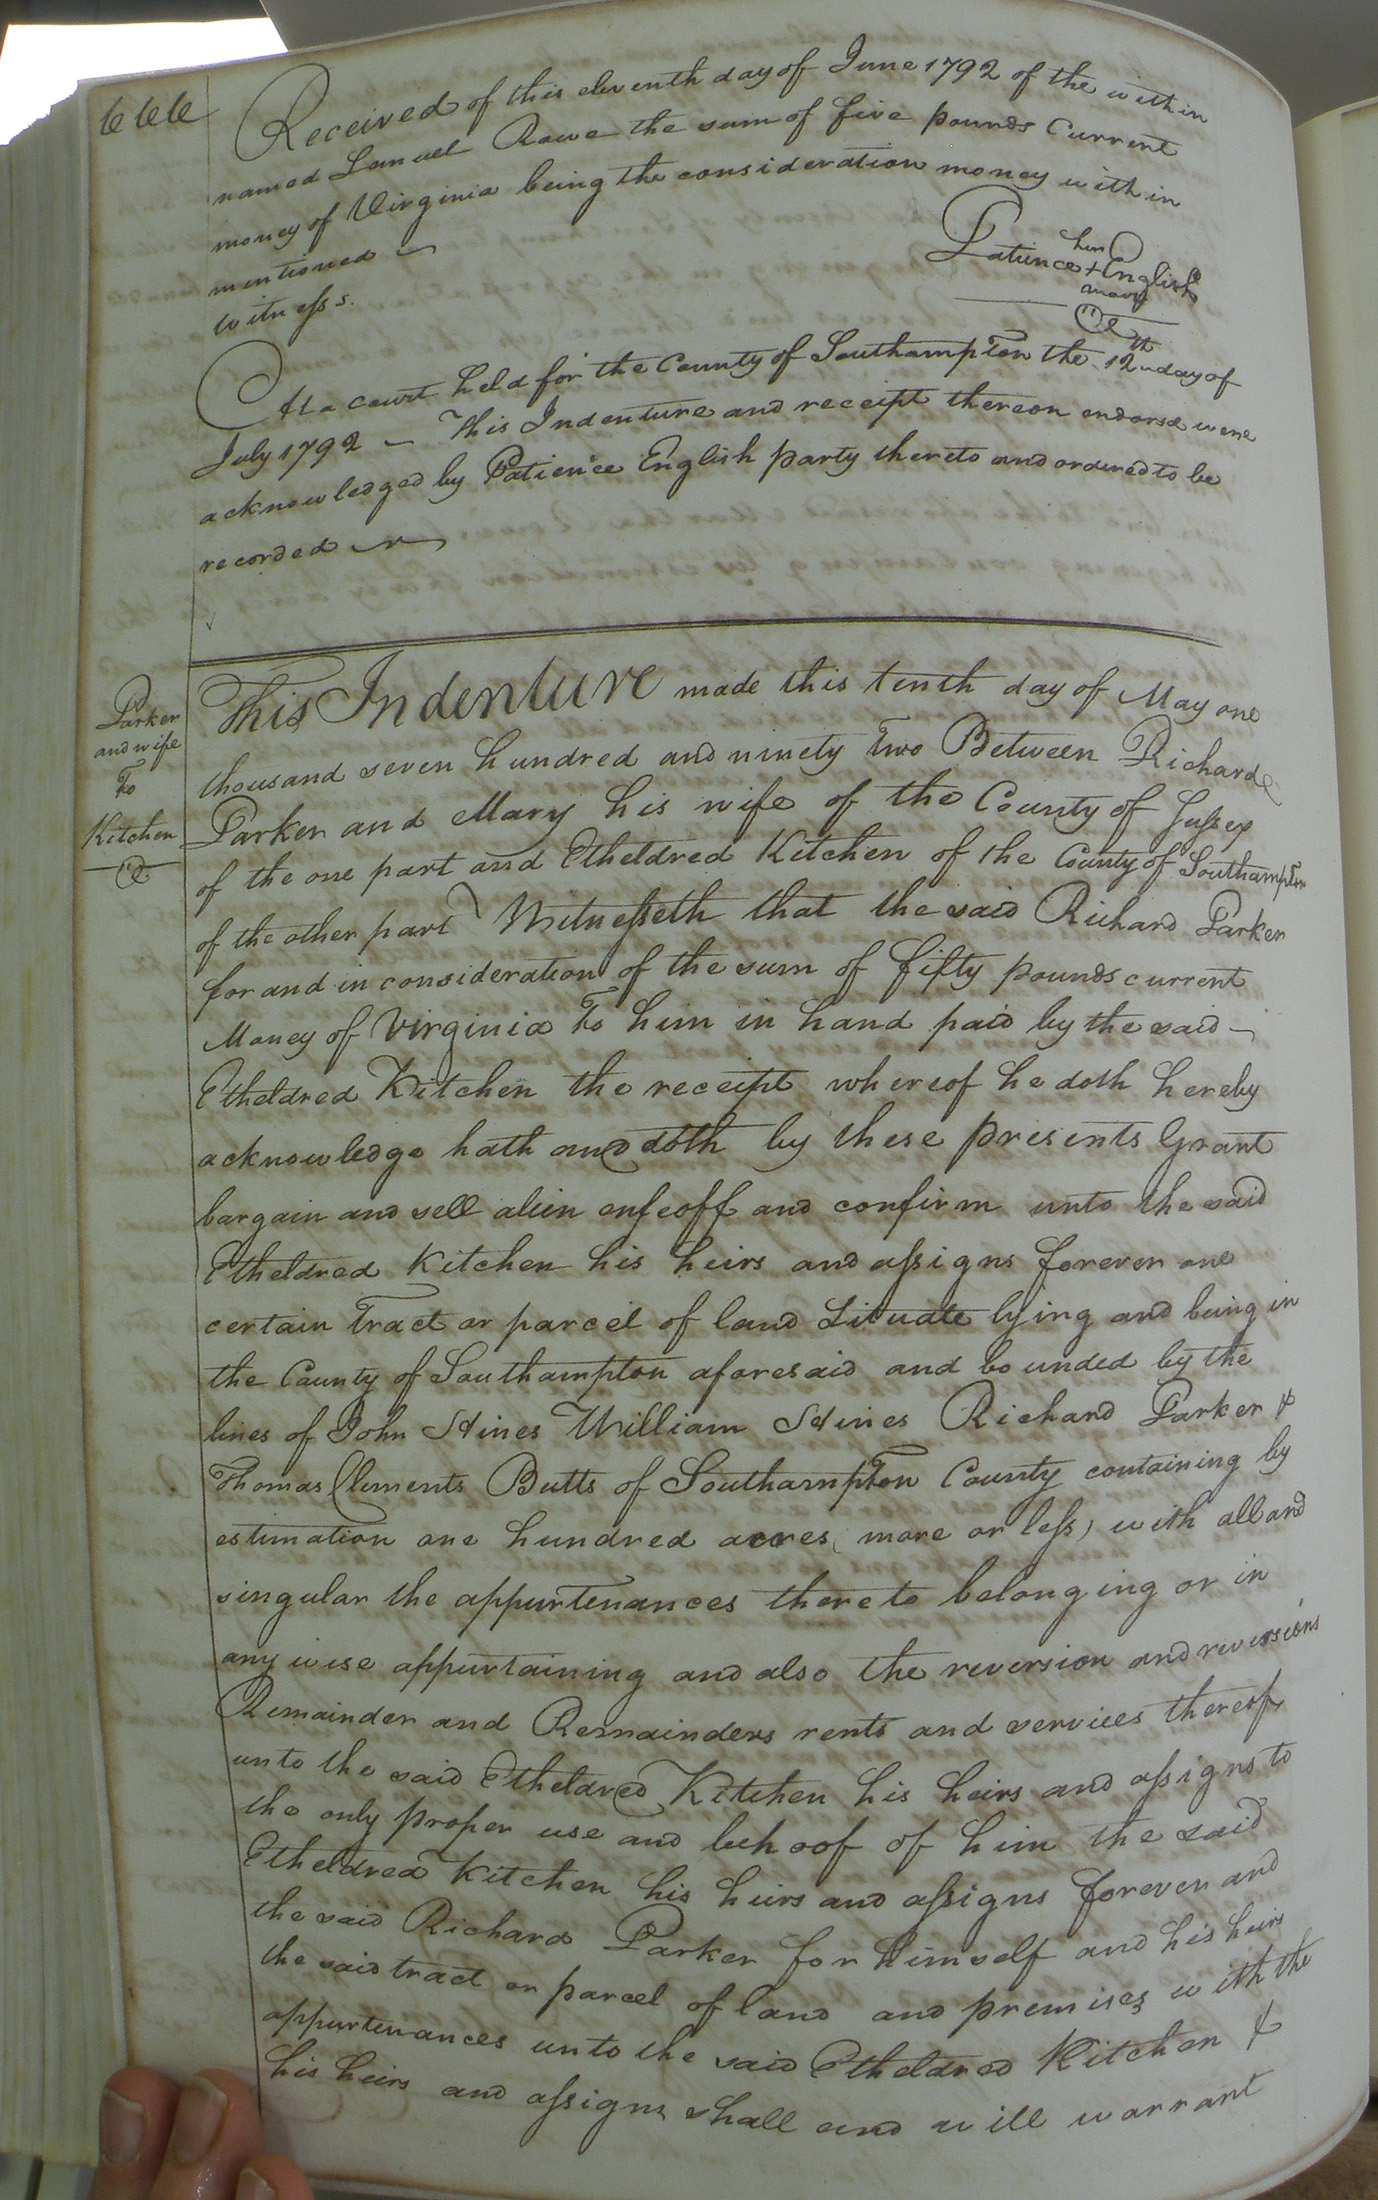 666
Received of this eleventh day of June 1792 of the within
named Samuel Rowe the sum of five pounds Current
money of Virginia being the consideration money within
mentioned
her
Patience + English
mark
Witness.
At a court held for the County of Southampton the 12th day of
July 1792 — This Indenture and receipt thereon endorsd were
acknowledged by Patience English party thereto and ordered to be
recorded
Parker
and wife
To
Kitchen
This Indenture made this tenth day of May one
thousand seven hundred and ninety two Between Richard
Parker and Mary his wife of the County of Sussex
of the one part and Etheldred Kitchen of the County of Southampton
of the other part Witnesseth that the said Richard Parker
for and in consideration of the sum of fifty pounds current
Money of Virginia To him in hand paid by the said
Etheldred Kitchen the receipt whereof he doth hereby
acknowledge hath and doth by these presents Grant
bargain and sell alien enfeoff and confirm unto the said
Etheldred Kitchen his heirs and assigns forever one
certain Tract or parcel of land Situate lying and being in
the County of Southampton aforesaid and bounded by the
lines of John Hines William Hines Richard Parker &
Thomas Clements Butts of Southampton County containing by
estimation one hundred acres (more or less) with all and
singular the appurtenances thereto belonging or in
any wise appurtaining and also the reversion and reversions
Remainder and Remainders rents and services thereof
unto the said Etheldred Kitchen his heirs and assigns to
the only proper use and behoof of him the said
Etheldred Kitchen his heirs and assigns forever and
the said Richard Parker for himself and his heirs
the said tract or parcel of land and premises with the
appurtenances unto the said Etheldred Kitchen &
his heirs and assigns shall and will warrant